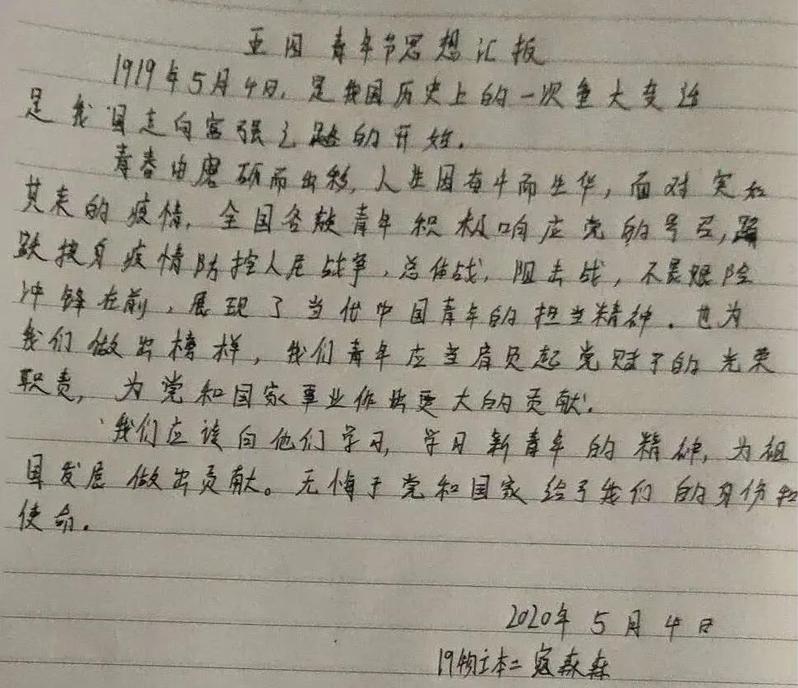 五四青年节思想汇报
1919年5月4日,是我国历史上的一次重大变迁
是我国走向富强之路的开始.
青春由磨砺而出彩,人生因奋斗而生华,面对突如
其来的疫情,全国各族青年积极响应党的号召,踊
跃投身疫情防控人民战争,总体战,阻击战,不畏艰险
冲锋在前,展现了当代中国青年的担当精神.也为
我们做出榜样,我们青年应当肩负起党赋予的光荣
职责,为党和国家事业作出更大的贡献.
我们应该向他们学习,学习新青年的精神,为祖
国发展做出贡献。无悔于党和国家给予我们的身份和
使命.
2020年5月4日
19物本二 寇森森